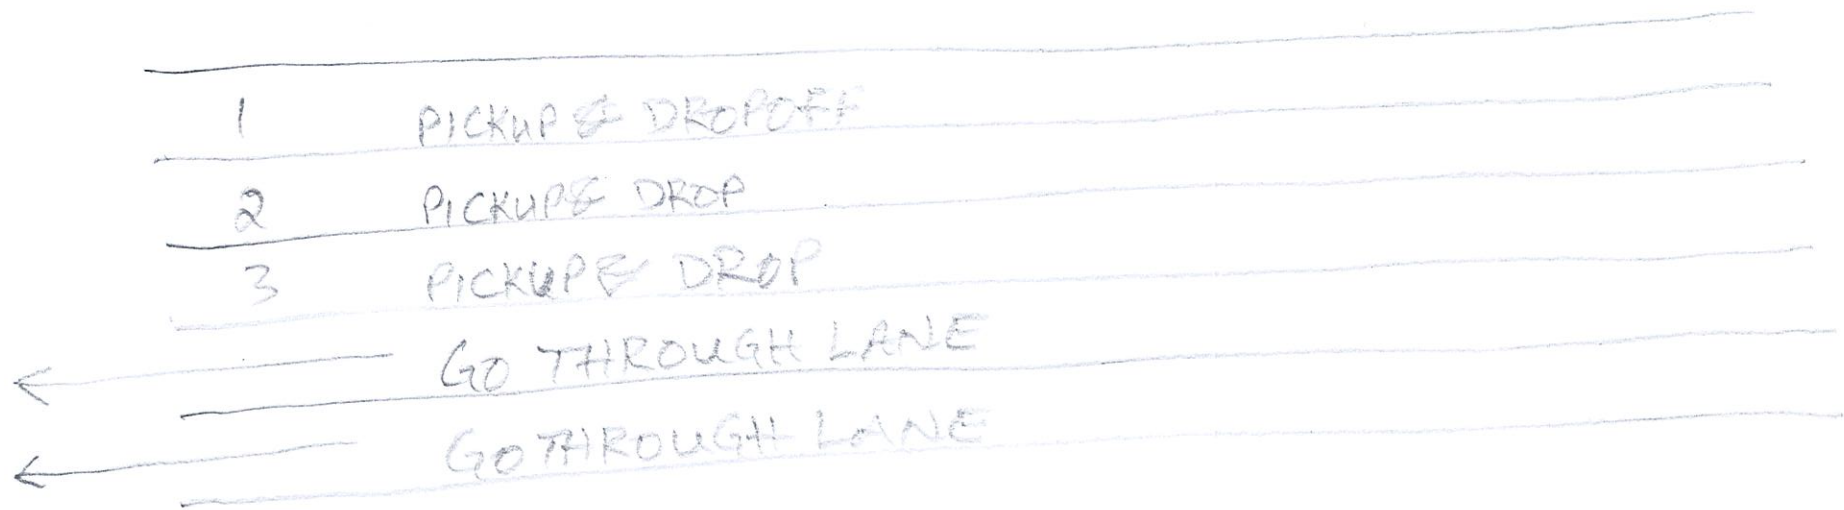 1 PICKUP & DROPOFF
2 PICKUP & DROP
3 PICKUP & DROP
GO THROUGH LANE
GO THROUGH LANE